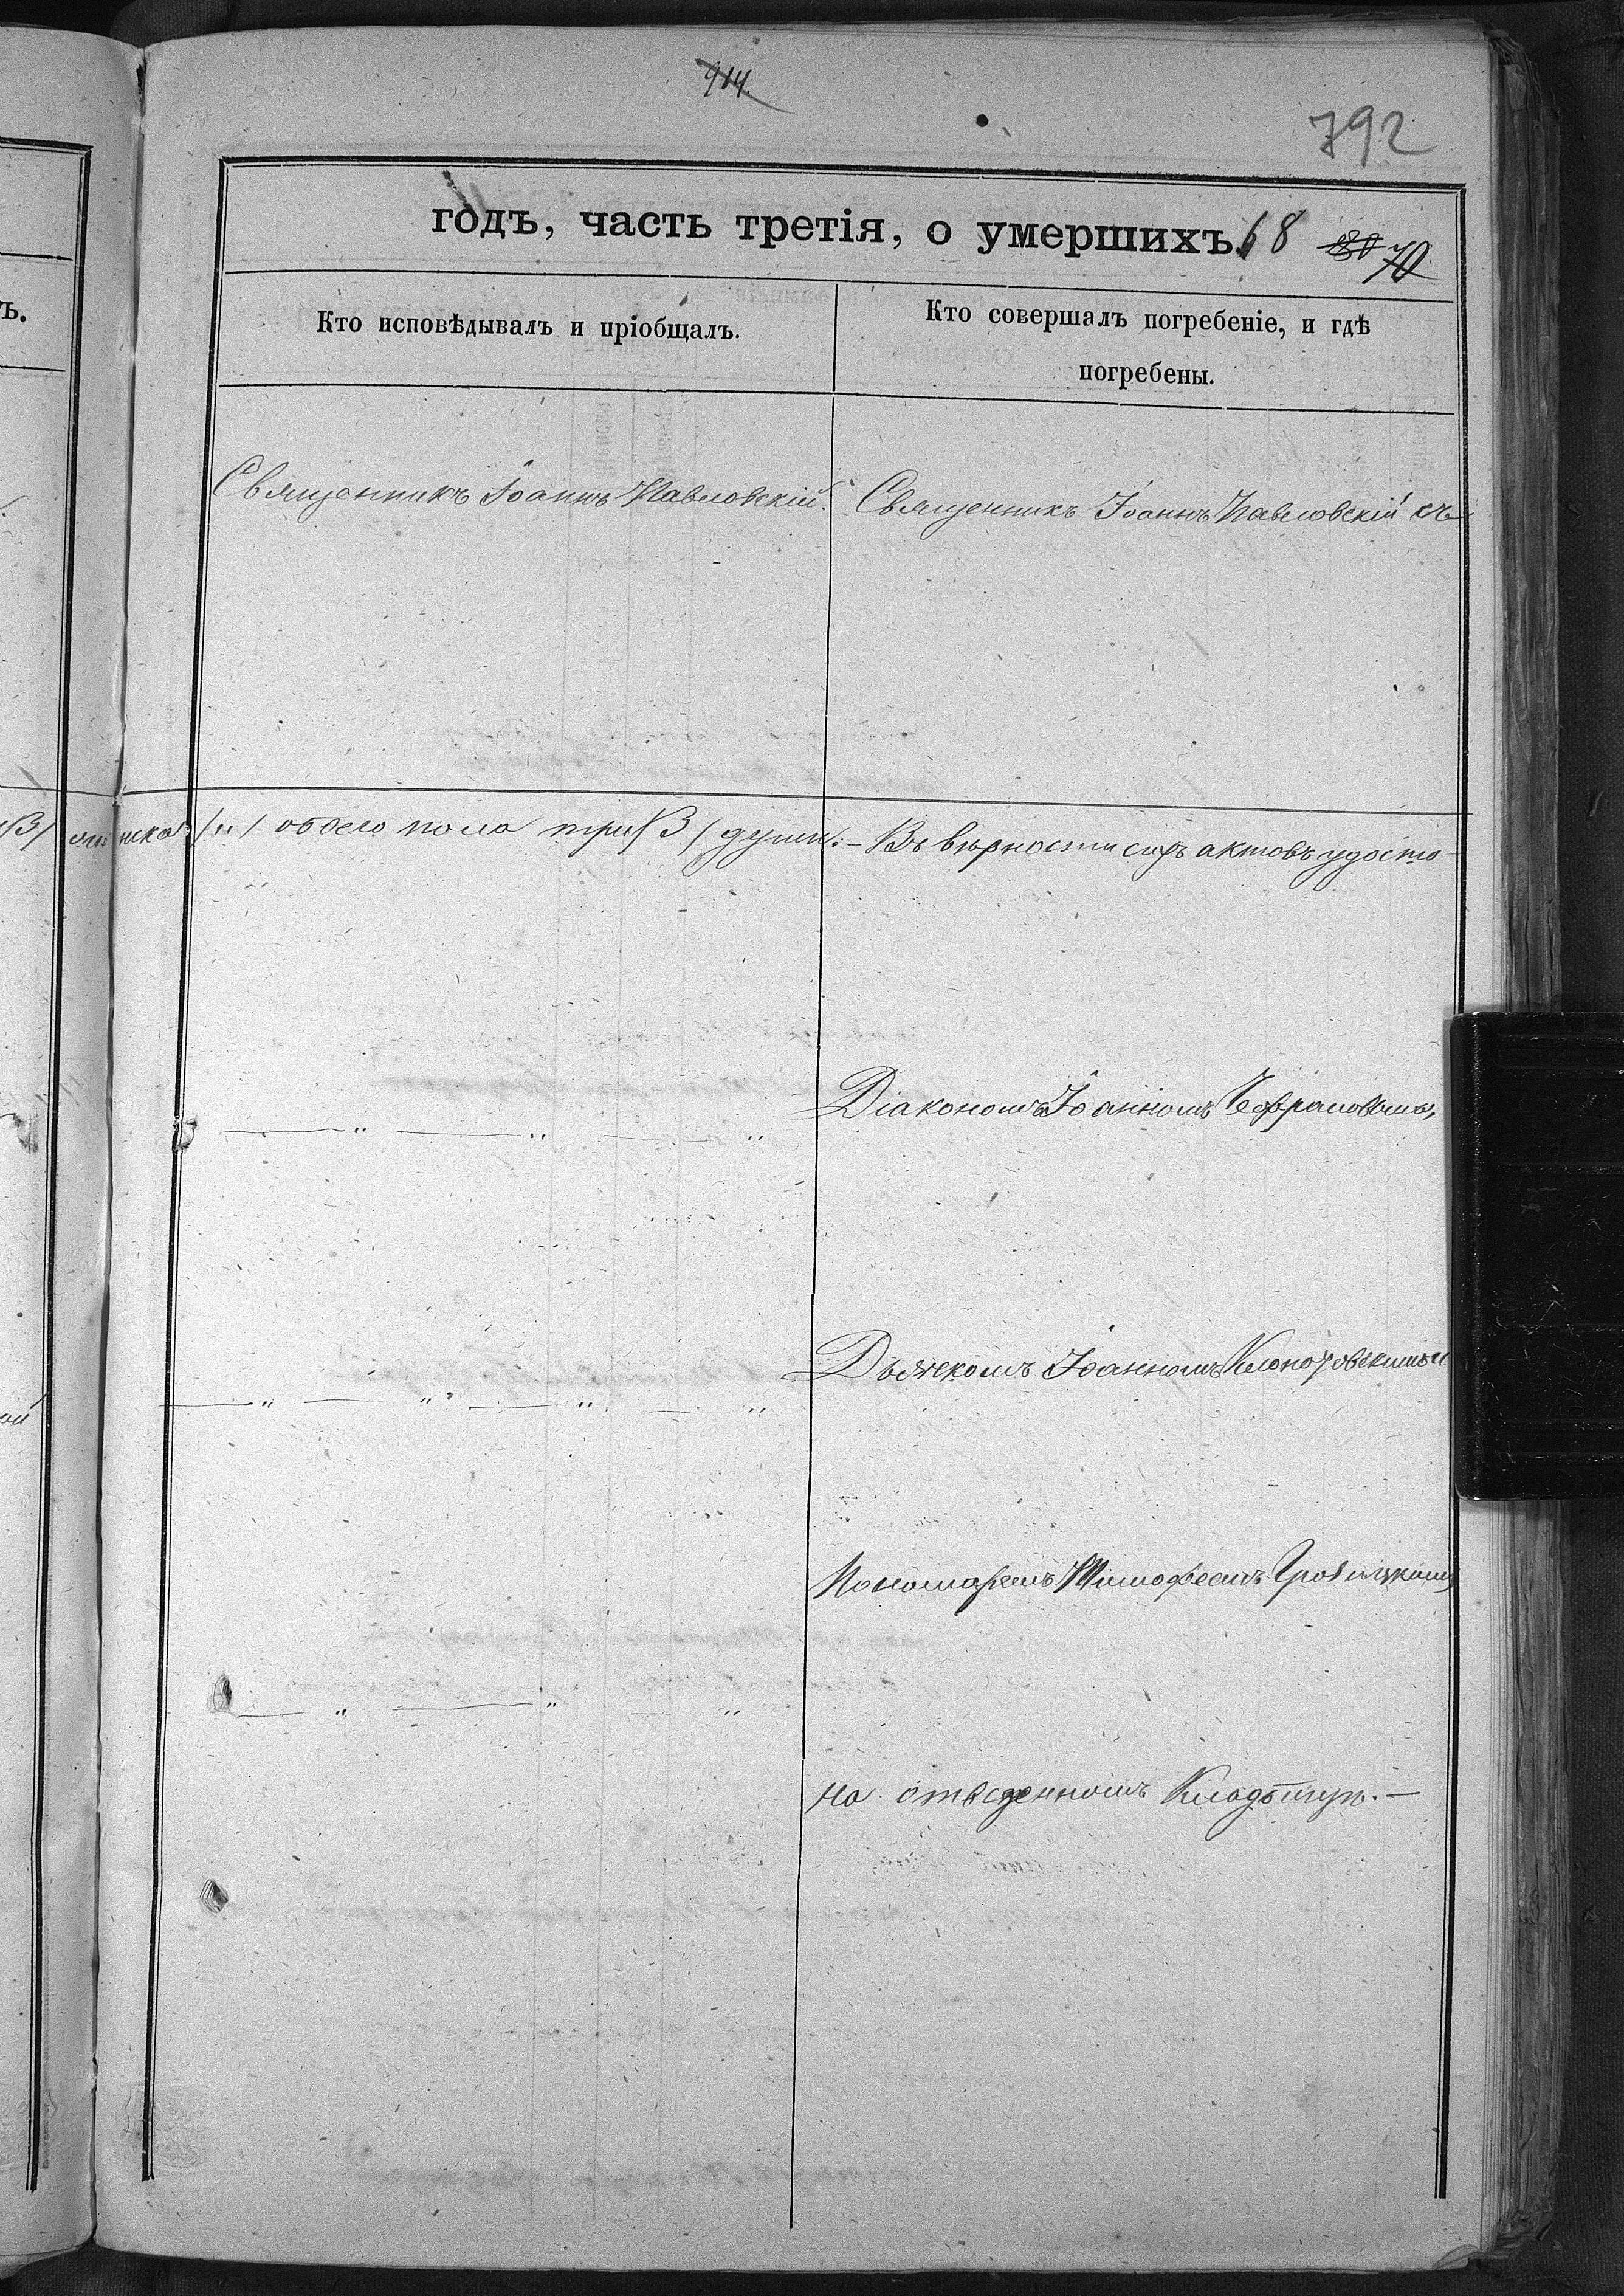 914.
792
годъ, часть третія, о умершихъ. 68 70
ъ.
Кто исповѣдывалъ и пріобщалъ.
Кто совершалъ погребеніе, и гдѣ
погребены.
Священникъ Іоаннъ Павловскій.
Священникъ Іоаннъ Павловскій съ
/3/ женска /"/ обоего пола три /3/ души. — Въ вѣрности сихъ актовъ удосто-
Діакономъ Іоанномъ
— " — " — "
Дьячкомъ Іоанномъ Клопотовскимъ и
— " — " — " — "
Пономаремъ Тимофеемъ
— " — " — "
на отведенномъ Кладбищѣ. —